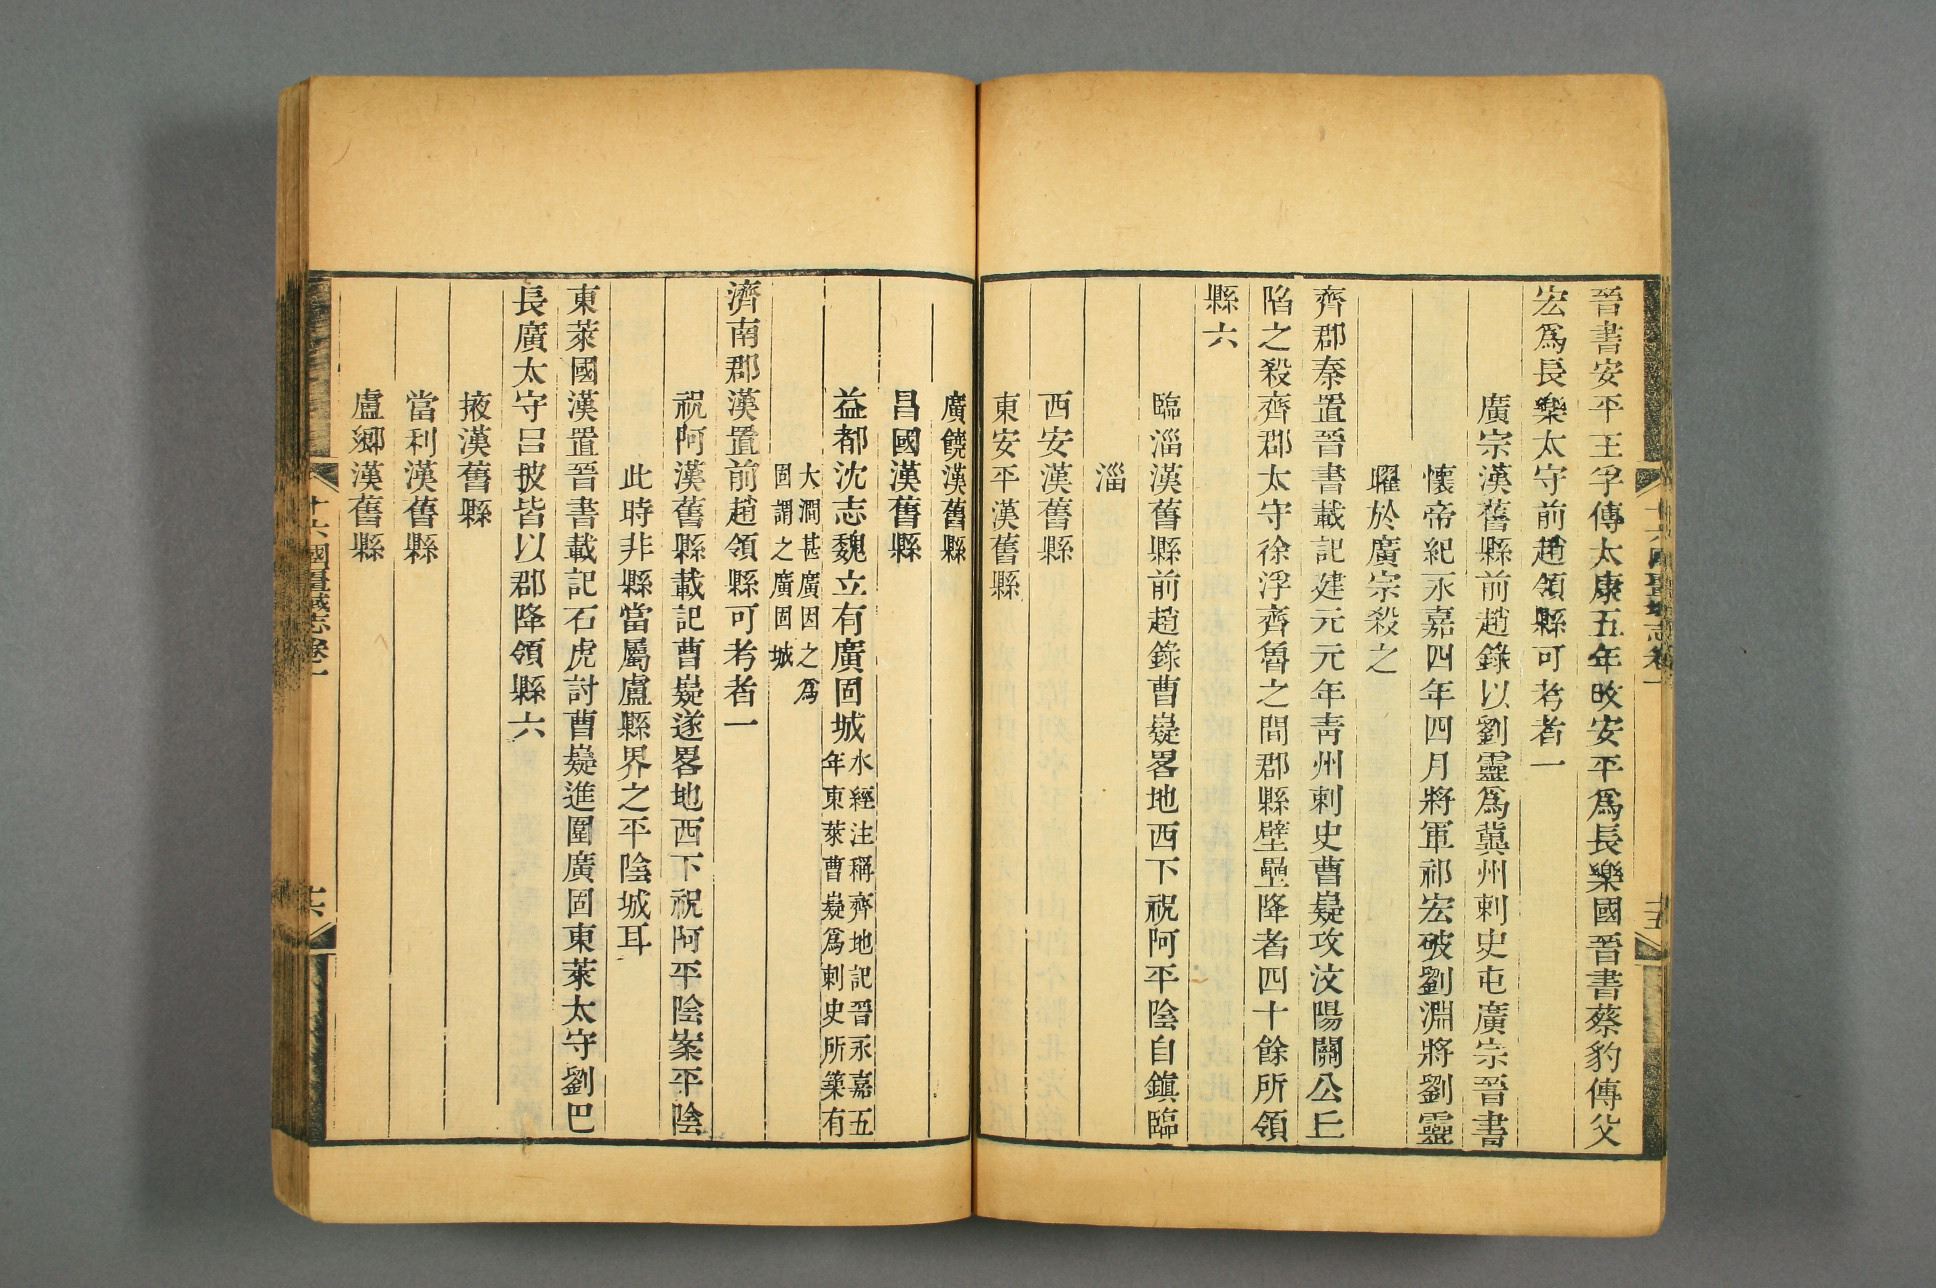 晉書安平王孚傳太康五年改安平爲長樂國晉書蔡豹傳父
宏爲長樂太守前趙領縣可考者一
廣宗漢舊縣前趙錄以劉靈爲冀州刺史屯廣宗晉書
懷帝紀永嘉四年四月將軍祁宏破劉淵將劉靈
曜於廣宗殺之
齊郡秦置晉書載記建元元年靑州刺史曹嶷攻汶陽關公丘
陷之殺齊郡太守徐浮齊魯之間郡縣壁壘降者四十餘所領
縣六
臨淄漢舊縣前趙錄曹嶷畧地西下祝阿平陰自鎭臨
淄
西安漢舊縣
東安平漢舊縣
十六國疆域志卷一
十五
廣饒漢舊縣
昌國漢舊縣
益都沈志魏立有廣固城水經注稱齊地記晉永嘉五
年東萊曹嶷爲刺史所築有
大澗甚廣因之爲
固謂之廣固城
濟南郡漢置前趙領縣可考者一
祝阿漢舊縣載記曹嶷遂畧地西下祝阿平陰案平陰
此時非縣當屬盧縣界之平陰城耳
東萊國漢置晉書載記石虎討曹嶷進圍廣固東萊太守劉巴
長廣太守呂披皆以郡降領縣六
掖漢舊縣
當利漢舊縣
盧鄉漢舊縣
十六國疆域志卷一
十六